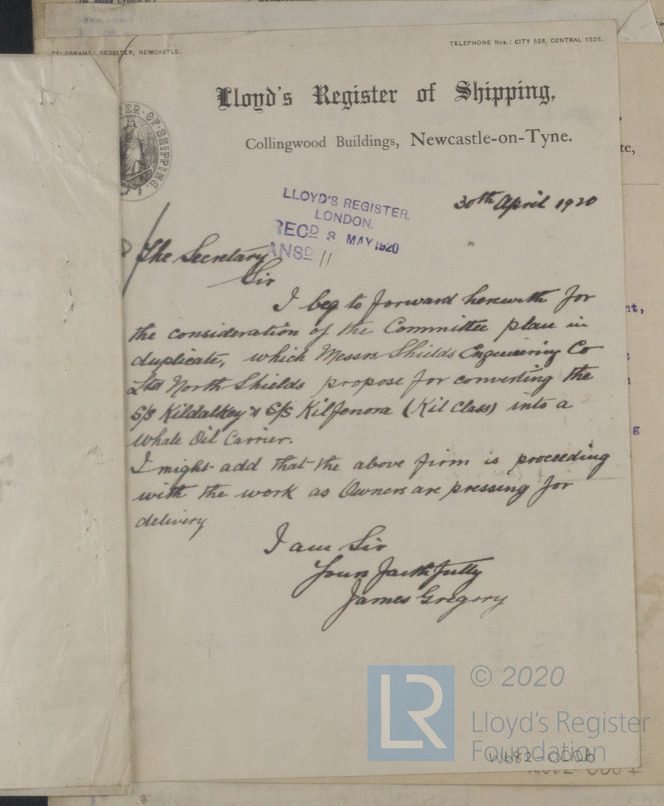 TELEGRAMS: REGISTER, NEWCASTLE.
TELEPHONE Nos.: CITY 528, CENTRAL 1526.
Lloyd's Register of Shipping,
Collingwood Buildings, Newcastle-on-Tyne.
30th April 1920
LLOYD'S REGISTER,
LONDON.
RECD 3 MAY 1920
ANSD
The Secretary
Sir
I beg to forward herewith for
the consideration of the Committee plan in
duplicate, which Messrs Shields Engineering Co
Ltd North Shields propose for converting the
S/S Kildalkey & S/S Kilfenora (Kil Class) into a
Whale Oil Carrier.
I might add that the above firm is proceeding
with the work as Owners are pressing for
delivery
I am Sir
Yours faithfully
James Gregory
© 2020
LR
Lloyd's Register
Foundation
W682-0006